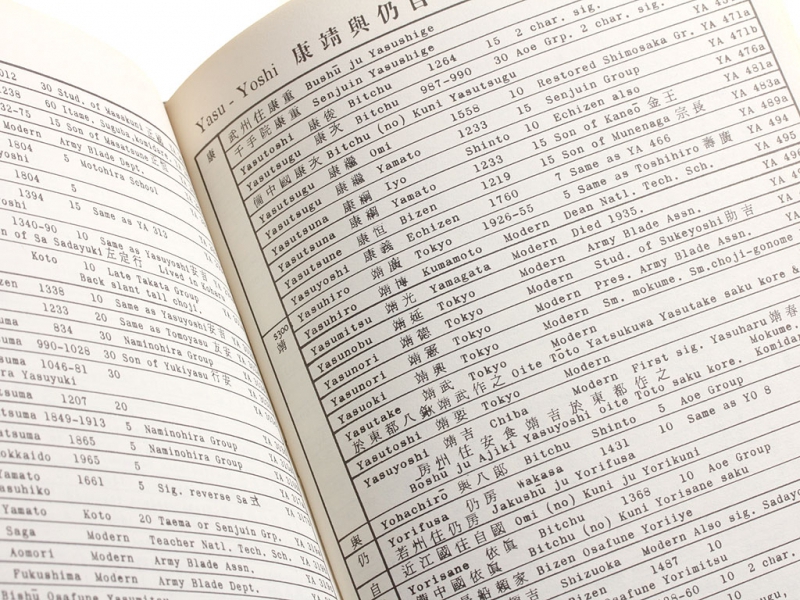 012 30 Stud. of Masakuni 正
1238 60 Itame. Suguba,komidare.
32-75 15 Son of Masatsune 正恒
Modern Army Blade Dept.
1804 5 Motohira School
1804 5
1394 15 Same as YA 313
1340-90 10 Same as Yasuyoshi 安吉
n of Sa Sadayuki 左定行 Lived in
Koto 10 Late Takata Group
Back slant tall choji.
izen 1338 10 Same as Yasuyoshi 安吉
1233 20 Same as Tomoyasu 友安
uma 834 30 Naminohira Group
suma 990-1028 30 Son of Yukiyasu 行安
suma 1046-81 30
ra Yasuyuki
suma 1207 20
atsuma 1849-1913 5 Naminohira Group
atsuma 1865 5 Naminohira Group
okkaido 1965 5
Yamato 1661 5 Sig. reverse Sa
asuhiko
Yamato Koto 20 Taema or Senjuin Grp.
Saga Modern Teacher Natl. Tech. Sch.
Aomori Modern Army Blade Assn.
Fukushima Modern Army Blade Dept.
Bishū Osafune Yasumitsu
Yasu - Yoshi 康靖與仍自
康
武州住康重 Bushū ju Yasushige
千手院康重 Senjuin Yasushige
Yasutoshi 康俊 Bitchu 1264 15 2 char. sig.
Yasutsugu 康次 Bitchu 987-990 30 Aoe Grp. 2 char. sig. YA 471a
備中國康次 Bitchu (no) Kuni Yasutsugu YA 471b
Yasutsugu 康繼 Omi 1558 10 Restored Shimosaka Gr. YA 476a
Yasutsugu 康繼 Yamato 1233 15 Senjuin Group YA 481a
Yasutsuna 康綱 Iyo Shinto 10 Echizen also YA 483a
Yasutsuna 康綱 Yamato 1233 15 Son of Kaneō 金王 YA 489a
Yasutsune 康恒 Bizen 1219 15 Son of Munenaga 宗長 YA 494
Yasuyoshi 康義 Echizen 1760 7 Same as YA 466 YA 495
Yasuhiro 靖廣 Tokyo 1926-55 5 Same as Toshihiro 壽廣 YA 496
Yasuhiro 靖博 Kumamoto Modern Dean Natl. Tech. Sch.
Yasumitsu 靖光 Yamagata Modern Died 1935.
Yasunobu 靖延 Tokyo Modern Army Blade Assn.
Yasunori 靖德 Tokyo Modern Stud. of Sukeyoshi 助吉
Yasunori 靖憲 Tokyo Modern Pres. Army Blade Assn.
Yasuoki 靖興 Tokyo Modern Sm. mokume. Sm.choji-gonome
Yasutake 靖武 Tokyo Modern
於東都八鍬靖武作之 Oite Tōto Yatsukuwa Yasutake saku kore &
Yasutoshi 靖要 Tokyo Modern
Yasuyoshi 靖吉 Chiba Modern First sig. Yasuharu 靖春
房州住安食靖吉於東都作之 Mokume.
Bōshū ju Ajiki Yasuyoshi Oite Tōto saku kore. Komidare
Yohachirō 與八郎 Bitchu Shinto 5 Aoe Group
Yorifusa 仍房 Wakasa 1431 10 Same as YO 8
若州住仍房 Jakushū ju Yorifusa
近江國住自國 Omi (no) Kuni ju Yorikuni
Yorisane 依眞 Bitchu 1368 10 Aoe Group
備中國依眞 Bitchu (no) Kuni Yorisane saku
Bizen Osafune Yoriiye
Shizuoka Modern Also sig.
1487 10
Osafune Yorimitsu
5300
靖
與
仍
自